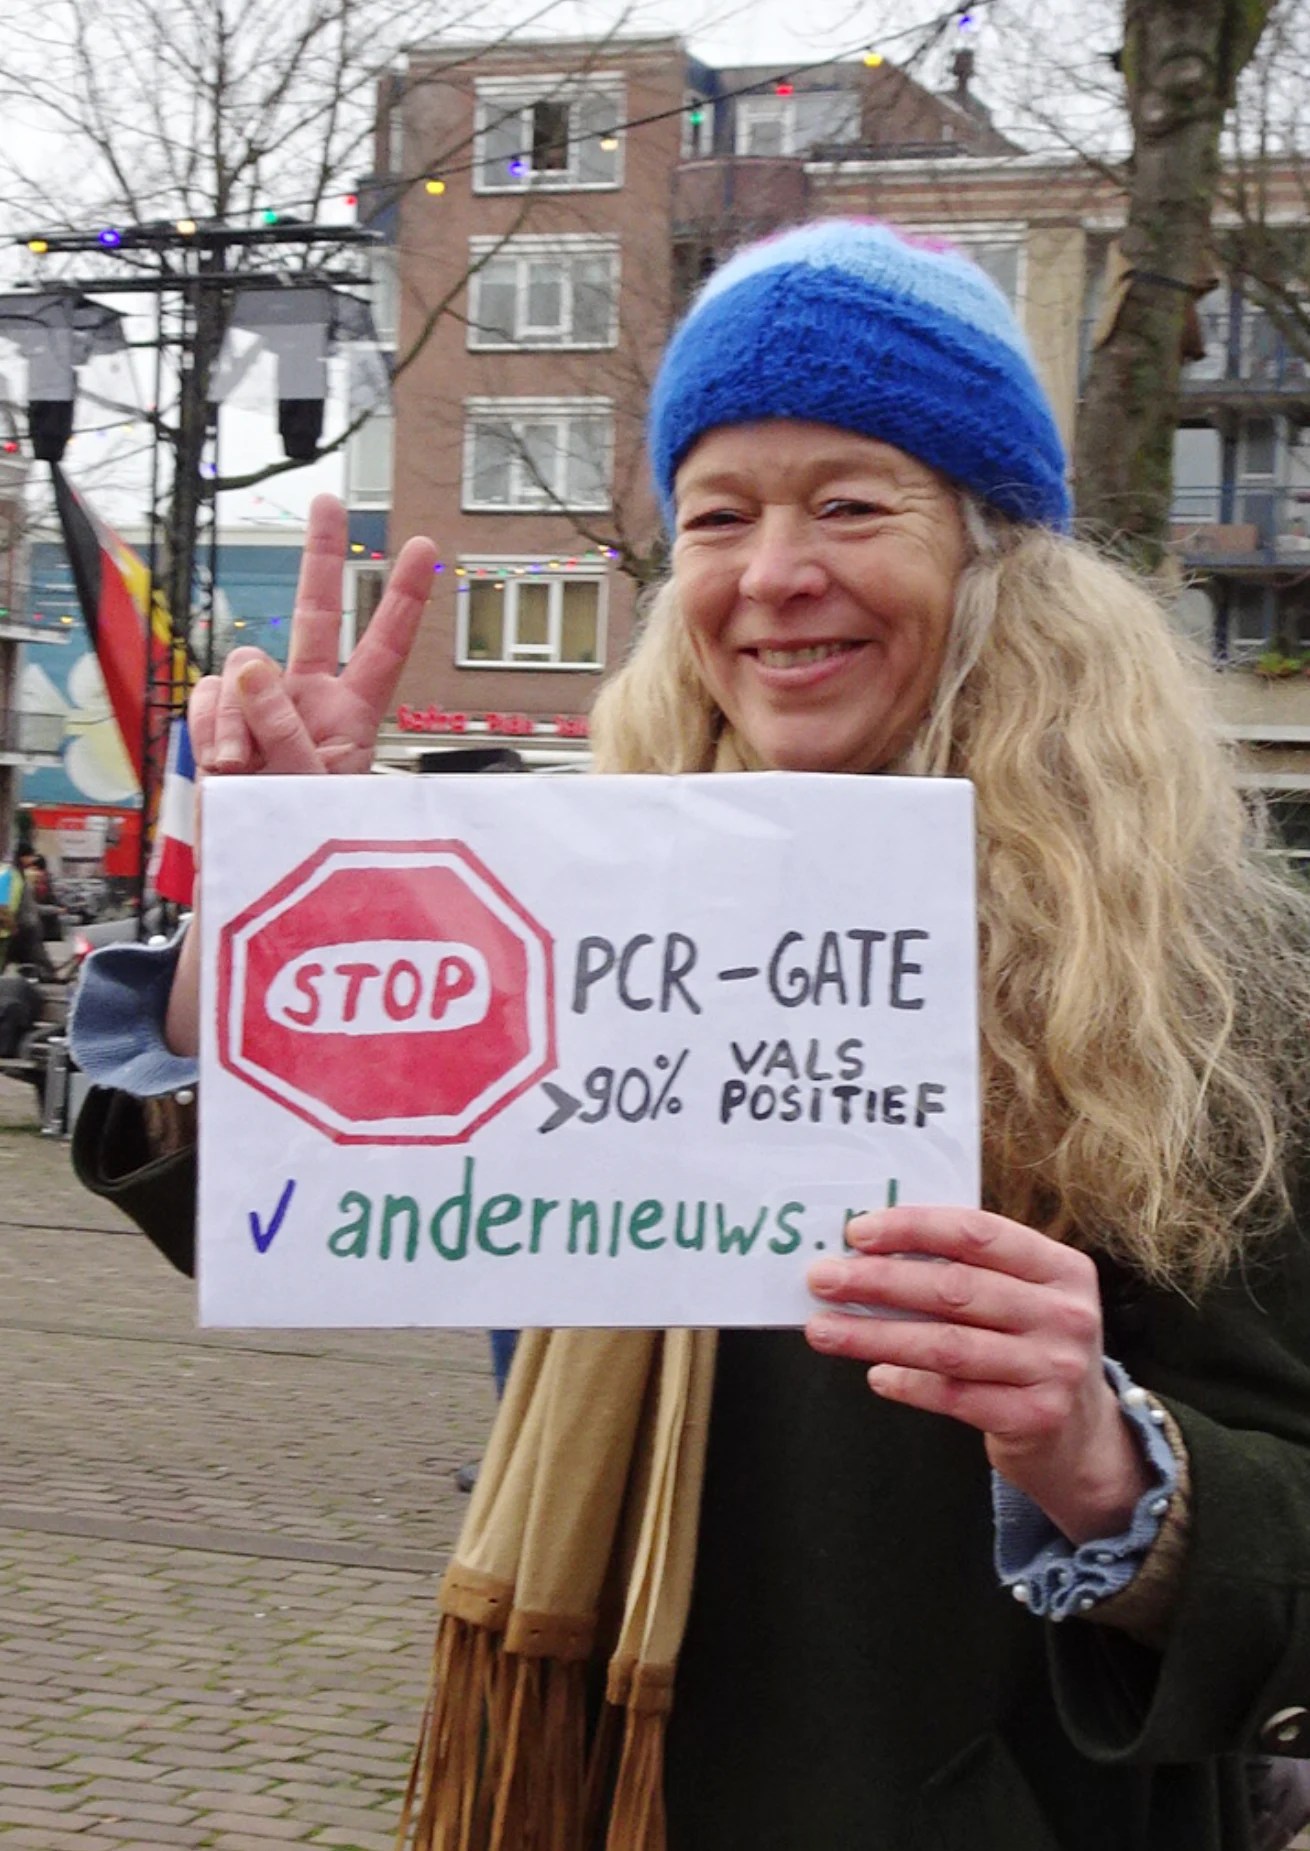 STOP
PCR-GATE
>90% VALS
POSITIEF
✓ andernieuws.nl